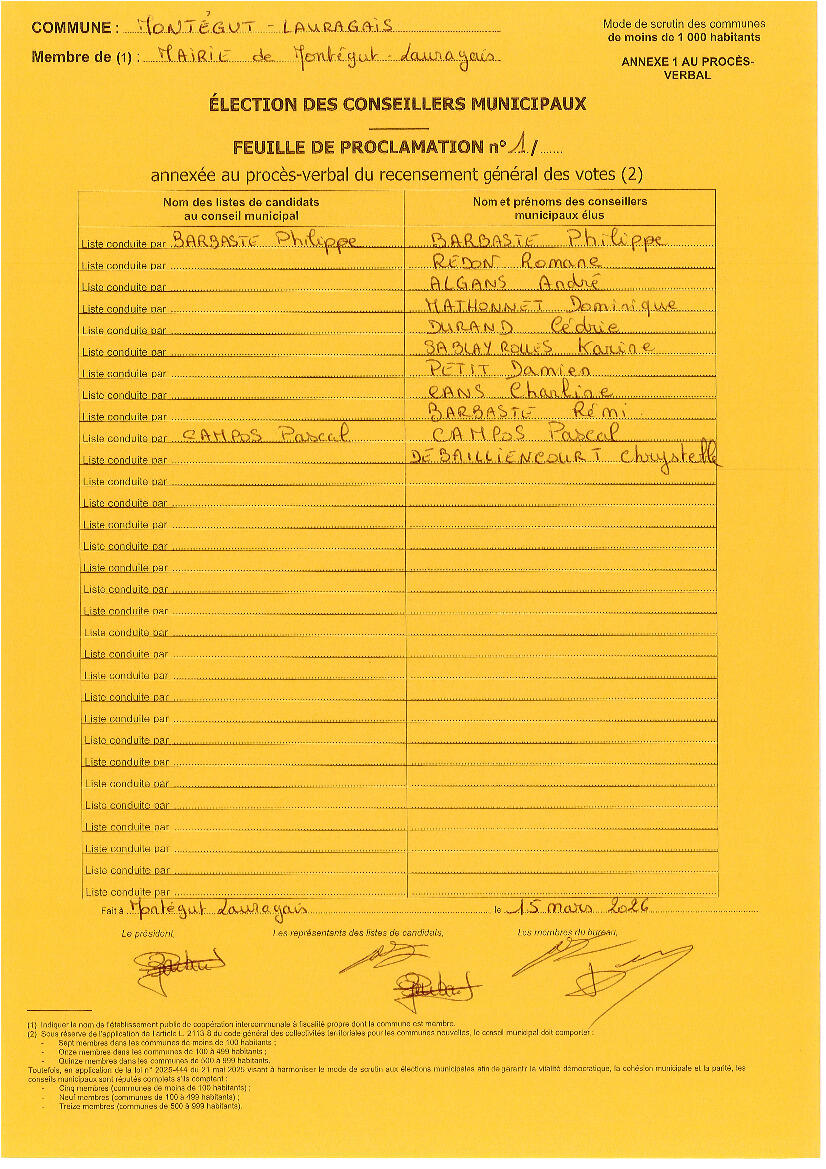 COMMUNE : MONTÉGUT - LAURAGAIS
Mode de scrutin des communes
de moins de 1 000 habitants
Membre de (1) : MAIRIE de Montégut-Lauragais
ANNEXE 1 AU PROCÈS-
VERBAL
ÉLECTION DES CONSEILLERS MUNICIPAUX
FEUILLE DE PROCLAMATION n° 1 /.......
annexée au procès-verbal du recensement général des votes (2)
Nom des listes de candidats
au conseil municipal
Nom et prénoms des conseillers
municipaux élus
Liste conduite par BARBASTE Philippe BARBASTE Philippe
Liste conduite par REDON Romane
Liste conduite par ALGANS André
Liste conduite par MATHONNET Dominique
Liste conduite par DURAND Cédric
Liste conduite par SABLAYROLLES Karine
Liste conduite par PETIT Damien
Liste conduite par CANS Charline
Liste conduite par BARBASTE Rémi
Liste conduite par CAMPOS Pascal CAMPOS Pascal
Liste conduite par DEBAILLIENCOURT Chrystelle
Liste conduite par
Liste conduite par
Liste conduite par
Liste conduite par
Liste conduite par
Liste conduite par
Liste conduite par
Liste conduite par
Liste conduite par
Liste conduite par
Liste conduite par
Liste conduite par
Liste conduite par
Liste conduite par
Liste conduite par
Liste conduite par
Liste conduite par
Liste conduite par
Liste conduite par
Liste conduite par
Fait à Montégut Lauragais le 15 mars 2026
Le président, Les représentants des listes de candidats, Les membres du bureau,
(1) Indiquer le nom de l'établissement public de coopération intercommunale à fiscalité propre dont la commune est membre.
(2) Sous réserve de l'application de l'article L. 2113-8 du code général des collectivités territoriales pour les communes nouvelles, le conseil municipal doit comporter :
- Sept membres dans les communes de moins de 100 habitants ;
- Onze membres dans les communes de 100 à 499 habitants ;
- Quinze membres dans les communes de 500 à 999 habitants.
Toutefois, en application de la loi n° 2025-444 du 21 mai 2025 visant à harmoniser le mode de scrutin aux élections municipales afin de garantir la vitalité démocratique, la cohésion municipale et la parité, les
conseils municipaux sont réputés complets s'ils comptent :
- Cinq membres (communes de moins de 100 habitants) ;
- Neuf membres (communes de 100 à 499 habitants) ;
- Treize membres (communes de 500 à 999 habitants).